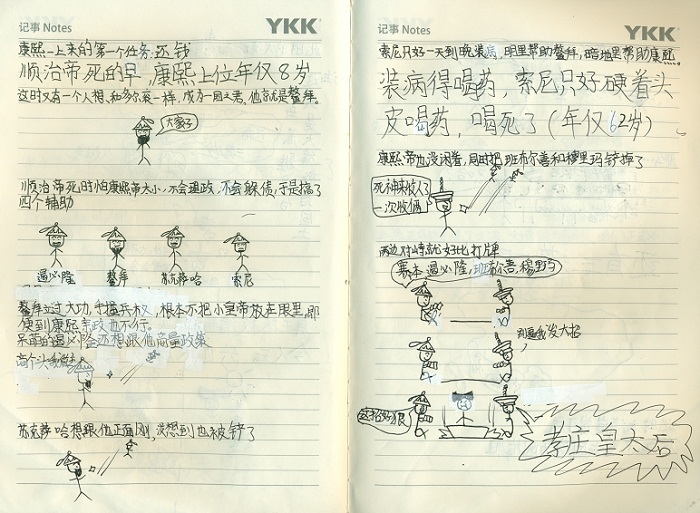 记事 Notes
YKK
康熙一上来的第一个任务:还钱
顺治帝死的早,康熙上位年仅8岁
这时又有一个人想和多尔衮一样,成为一国之君,他就是鳌拜。
大家好
顺治帝死时怕康熙帝太小,不会理政,不会躲债,于是搞了
四个辅助
遏必隆
鳌拜
苏克萨哈
索尼
鳌拜立过大功,手握兵权,根本不把小皇帝放在眼里,即
使到康熙亲政也不行。
呆萌的遏必隆还想跟他商量政策
苏克萨哈想跟他正面刚,没想到也被铲了
记事 Notes
YKK
索尼只好一天到晚装病,明里帮助鳌拜,暗地里帮助康熙。
装病得喝药,索尼只好硬着头
皮喝药,喝死了(年仅62岁)
康熙帝也没闲着,同时把班布尔善和穆里玛铲掉了
死神来收人了
一次收俩
两边对峙就好比打牌
赛本,遏必隆,班布尔善,穆里玛
别逼我发大招
这招好狠
孝庄皇太后